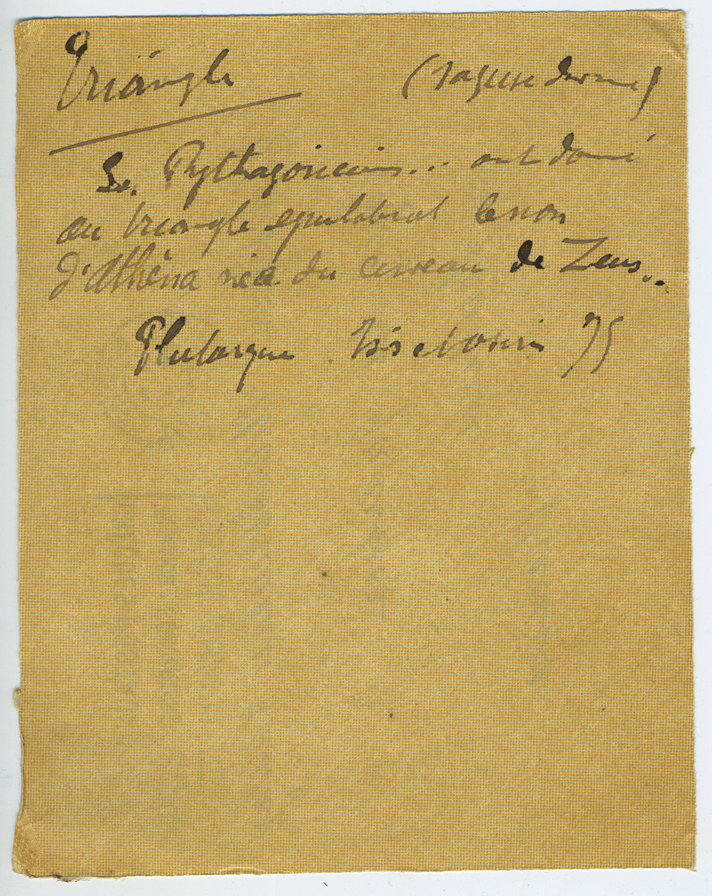 Triangle (sagesse divine)
Les Pythagoriciens... ont donné
au triangle equilateral le nom
d'Athéna née du cerveau de Zeus..
Plutarque Isis et Osiris 75